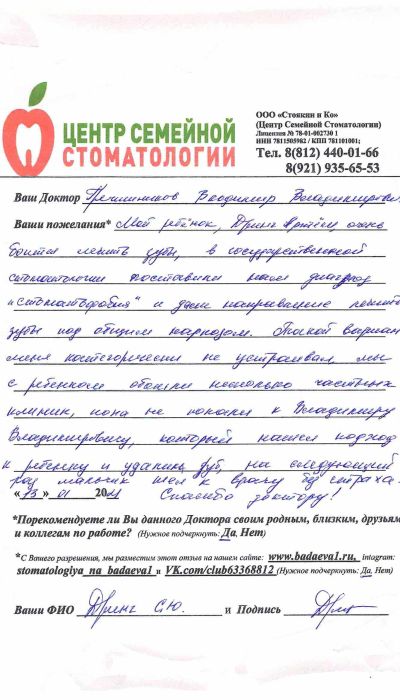 ЦЕНТР СЕМЕЙНОЙ
СТОМАТОЛОГИИ
ООО «Стоякин и Ко»
(Центр Семейной Стоматологии)
Лицензия № 78-01-002730 1
ИНН 7811505982 / КПП 781101001;
Тел. 8(812) 440-01-66
8(921) 935-65-53
Ваш Доктор Владимир Владимирович
Ваши пожелания* Мой ребёнок, Дринг Артём очень
боится лечить зубы, в государственной
стоматологии поставили нам диагноз
"стоматофобия" и дали направление лечить
зубы под общим наркозом. Такой вариант
меня категорически не устраивал, мы
с ребенком обошли несколько частных
клиник, пока не попали к Владимиру
Владимировичу, который нашел подход
к ребенку и удалил зуб, на следующий
раз мальчик шел к врачу без страха.
«13» 01 2021 Спасибо доктору!
*Порекомендуете ли Вы данного Доктора своим родным, близким, друзьям
и коллегам по работе? (Нужное подчеркнуть: Да, Нет)
*С Вашего разрешения, мы разместим этот отзыв на нашем сайте: www.badaeva1.ru, intogram:
stomatologiya_na_badaeva1 и VK.com/club63368812 (Нужное подчеркнуть: Да, Нет)
Ваши ФИО Дринг С.Ю. и Подпись